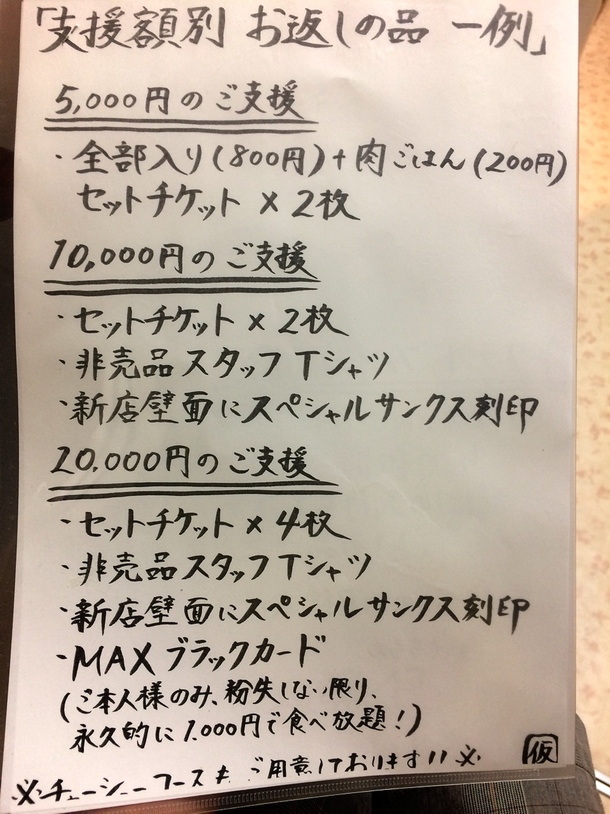 「支援額別 お返しの品 一例」
5,000円のご支援
・全部入り(800円)+肉ごはん(200円)
セットチケット×2枚
10,000円のご支援
・セットチケット×2枚
・非売品スタッフTシャツ
・新店壁面にスペシャルサンクス刻印
20,000円のご支援
・セットチケット×4枚
・非売品スタッフTシャツ
・新店壁面にスペシャルサンクス刻印
・MAXブラックカード
(ご本人様のみ、紛失しない限り、
永久的に1.000円で食べ放題!)
仮
ご用意しております!!※